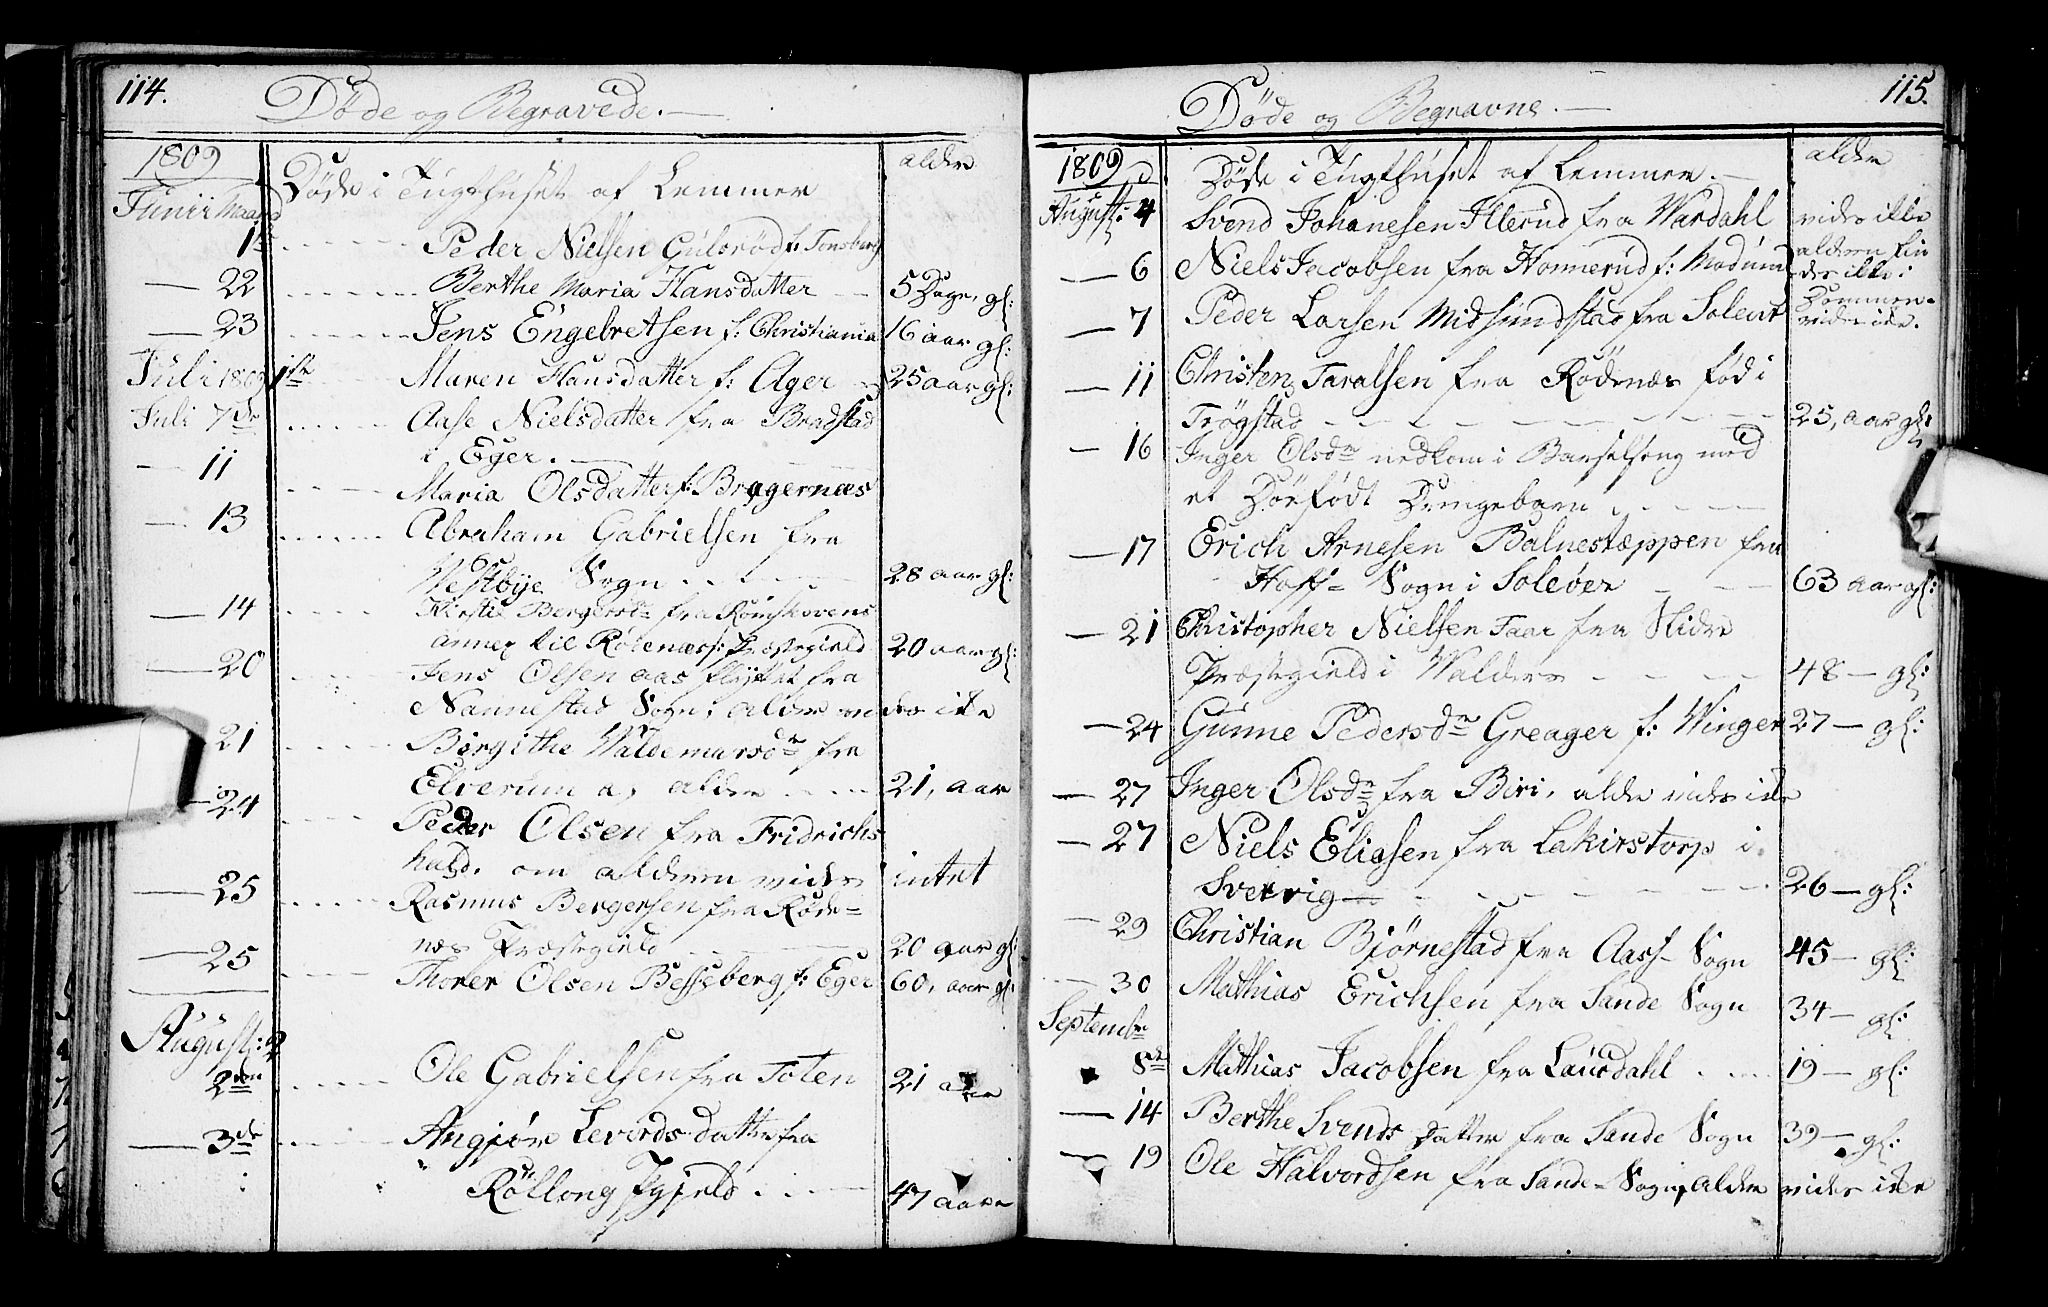 114.
Døde og Begravede.
1809
Døde i Tugthuset af Lemmer
alder
Junii Maaned
1te Peder Nielsen Gulsrød f: Tonsberg
22 Berthe Maria Hansdatter 5 Dage, gl:
23 Jens Engelretsen f: Christiania 16 aar gl:
Juli 1809 1ste Maren Hansdatter f: Ager 25 aar gl:
Juli 7de Aase Nielsdatter fra
i Eger.
11 Maria Olsdatter f: Bragernæs
13 Abraham Gabrielsen fra
Vestbye Sogn 28 aar gl:
14 Kirstie Bergersdr fra Römskovens
annex til Rödenæss: Præstegield 20 aar gl:
20 Jens Olsen aas flyttet fra
Nannestad Sogn, alder vides ikke
21 Birgithe Waldemarsdr fra
Elverum a, alder 21, aar
24 Peder Olsen fra Fridrichs
hald, om alderen vides intet
25 Rasmus Bergersen fra Røde=
næs Præstegield 20 aar gl:
25 Thorer Olsen Besseberg f: Eger 60, aar gl:
August:
2den Ole Gabrielsen fra Toten 21 aar
3de Angjør Leverds datter fra
Röllong Pgjeld 47 aar
115.
Døde og Begravne.
1809
Døde i Tugthuset af Lemmer.
alder
August: 4 Svend Johanesen Illerud fra Wardahl vides ikke
6 Niels Jacobsen fra Honnerud f: Modum alderen fin
des ikke i
Dommen.
7 Peder Larsen Midsundstad fra Soleur vides ikke.
11 Christen Taralsen fra Rödenæs föd i
Trögstad 25, aar gl:
16 Inger Olsdr nedkom i Barselseng med
et Dödfödt Drengebarn
17 Erich Arnesen Balnestæppen fra
Hoff= Sogn i Soleøer 63 aar gl:
21 Christopher Nielsen Faar fra Slidre
Præstegield i Walders 48 gl:
24 Gunne Pedersdr Greager f: Winger 27 gl:
27 Inger Olsdr fra Biri, alder vides ikke
27 Niels Eliasen fra Lakirstorp i
Sverrig 26 gl:
29 Christian Bjørnestad fra Aass Sogn 45 gl:
30 Mathias Erichsen fra Sande Sogn 34 gl:
Septembr
8de Mathias Jacobsen fra Laurdahl 19 gl:
14 Berthe Svends Datter fra Sande Sogn 39 gl:
19 Ole Halvordsen fra Sande= Sogn, alder vides ikke